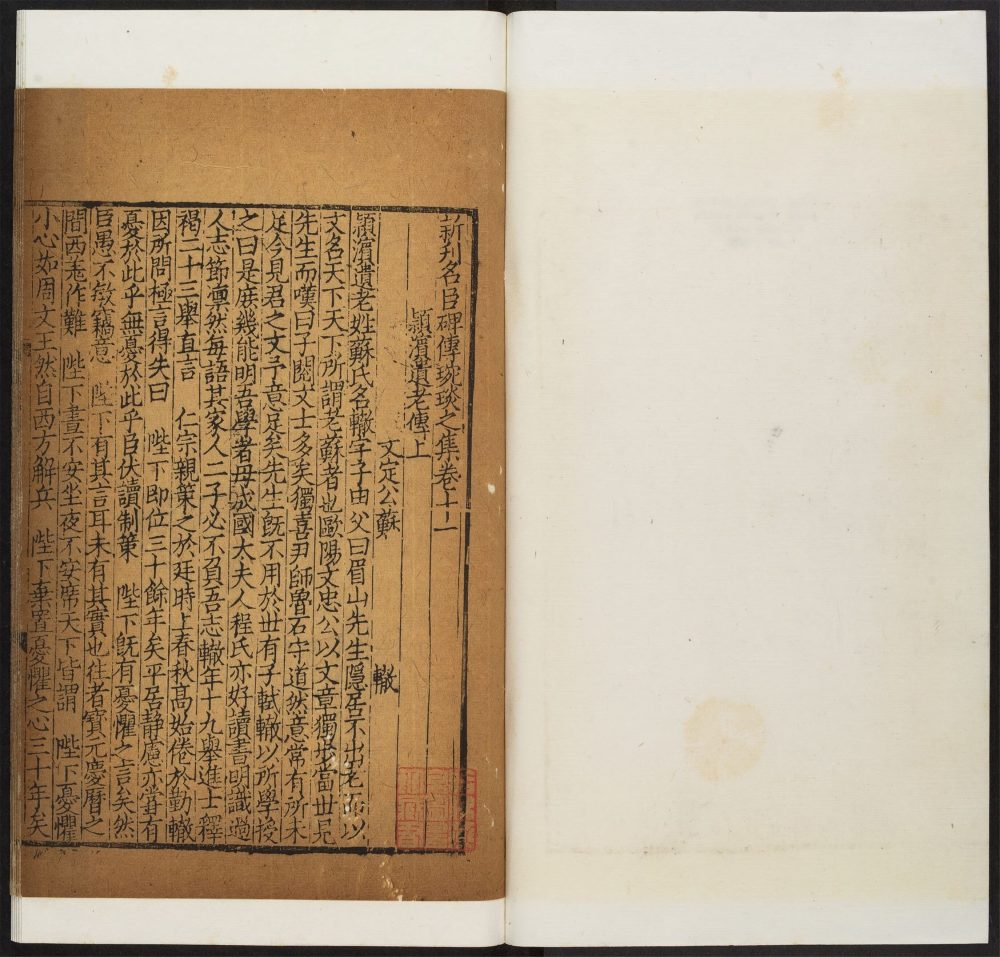 新刋名臣碑傳琬琰之集卷十一
潁濵遺老傳上
文定公蘇　轍
潁濵遺老姓蘇氏名轍字子由父曰眉山先生隱居不出老而以
文名天下天下所謂老蘇者也歐陽文忠公以文章獨步當世見
先生而嘆曰予閱文士多矣獨喜尹師魯石守道然意常有所未
足今見君之文予意足矣先生旣不用於世有子軾轍以所學授
之曰是庶幾能明吾學者母成國太夫人程氏亦好讀書明識過
人志節凛然每語其家人二子必不負吾志轍年十九舉進士釋
褐二十三舉直言　仁宗親策之於廷時上春秋髙始倦於勤轍
因所問極言得失曰　陛下即位三十餘年矣平居静慮亦嘗有
憂於此乎無憂於此乎臣伏讀制策　陛下旣有憂懼之言矣然
臣愚不敏竊意　陛下有其言耳未有其實也往者寶元慶曆之
間西羌作難　陛下晝不安坐夜不安席天下皆謂　陛下憂懼
小心如周文王然自西方解兵　陛下棄置憂懼之心三十年矣